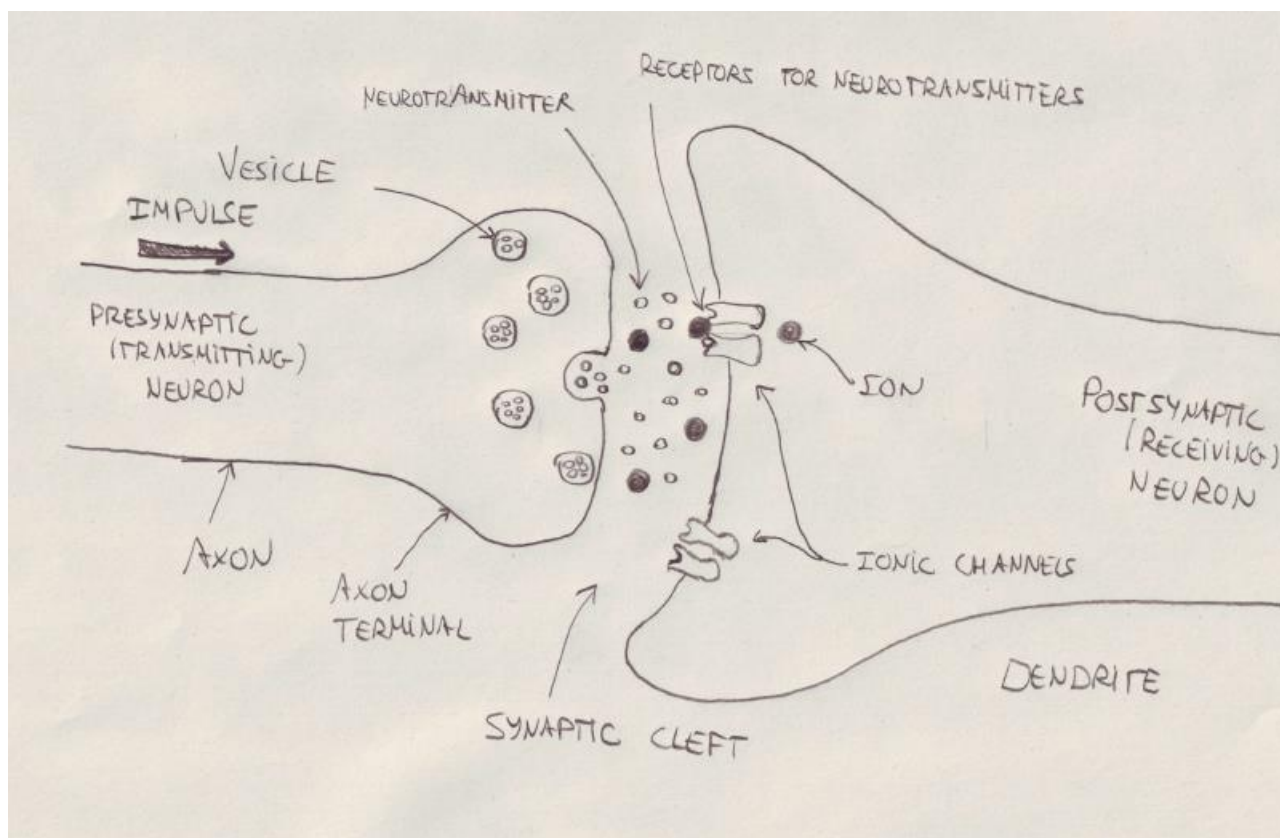 RECEPTORS FOR NEUROTRANSMITTERS
NEUROTRANSMITTER
VESICLE
IMPULSE
PRESYNAPTIC
(TRANSMITTING)
NEURON
ION
POSTSYNAPTIC
(RECEIVING)
NEURON
AXON
AXON
TERMINAL
IONIC CHANNELS
SYNAPTIC CLEFT
DENDRITE